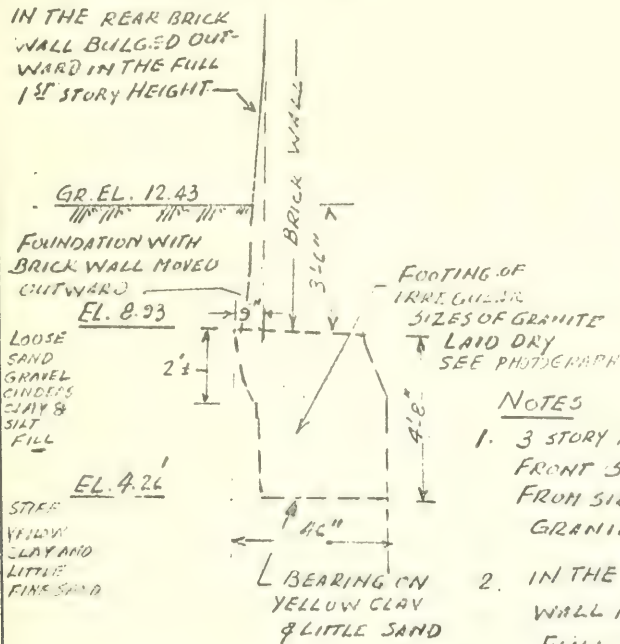 IN THE REAR BRICK
WALL BULGED OUT-
WARD IN THE FULL
1ST STORY HEIGHT
BRICK WALL
GR. EL. 12.43
3'-6"
FOUNDATION WITH
BRICK WALL MOVED
OUTWARD
9"
EL. 8.93
FOOTING OF
IRREGULAR
SIZES OF GRANITE
LAID DRY
SEE PHOTOGRAPH
LOOSE
SAND
GRAVEL
CINDERS
CLAY &
SILT
FILL
2'±
4'-8"
NOTES
1. 3 STORY
FRONT
FROM
EL. 4.26'
STIFF
YELLOW
CLAY AND
LITTLE
FINE SAND
46"
BEARING ON
YELLOW CLAY
& LITTLE SAND
2. IN THE
WALL